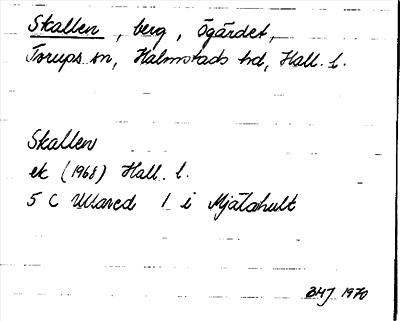 Skallen, berg, Ögärdet,
Torups sn, Halmstads hd, Hall. l.
Skallen
ek (1968) Hall. l.
5 C Ullared 1 i Mjälahult
BHJ 1970